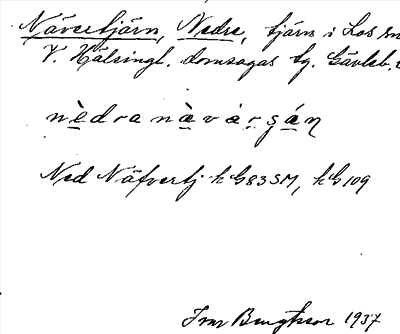 Nävertjärn, Nedre, tjärn i Los sn
V. Hälsingl. domsagas tg. Gävleb.
nèdra nàvàrṣán
Ned Näfvertj kG83SM, kG109
Bengtsson 1937